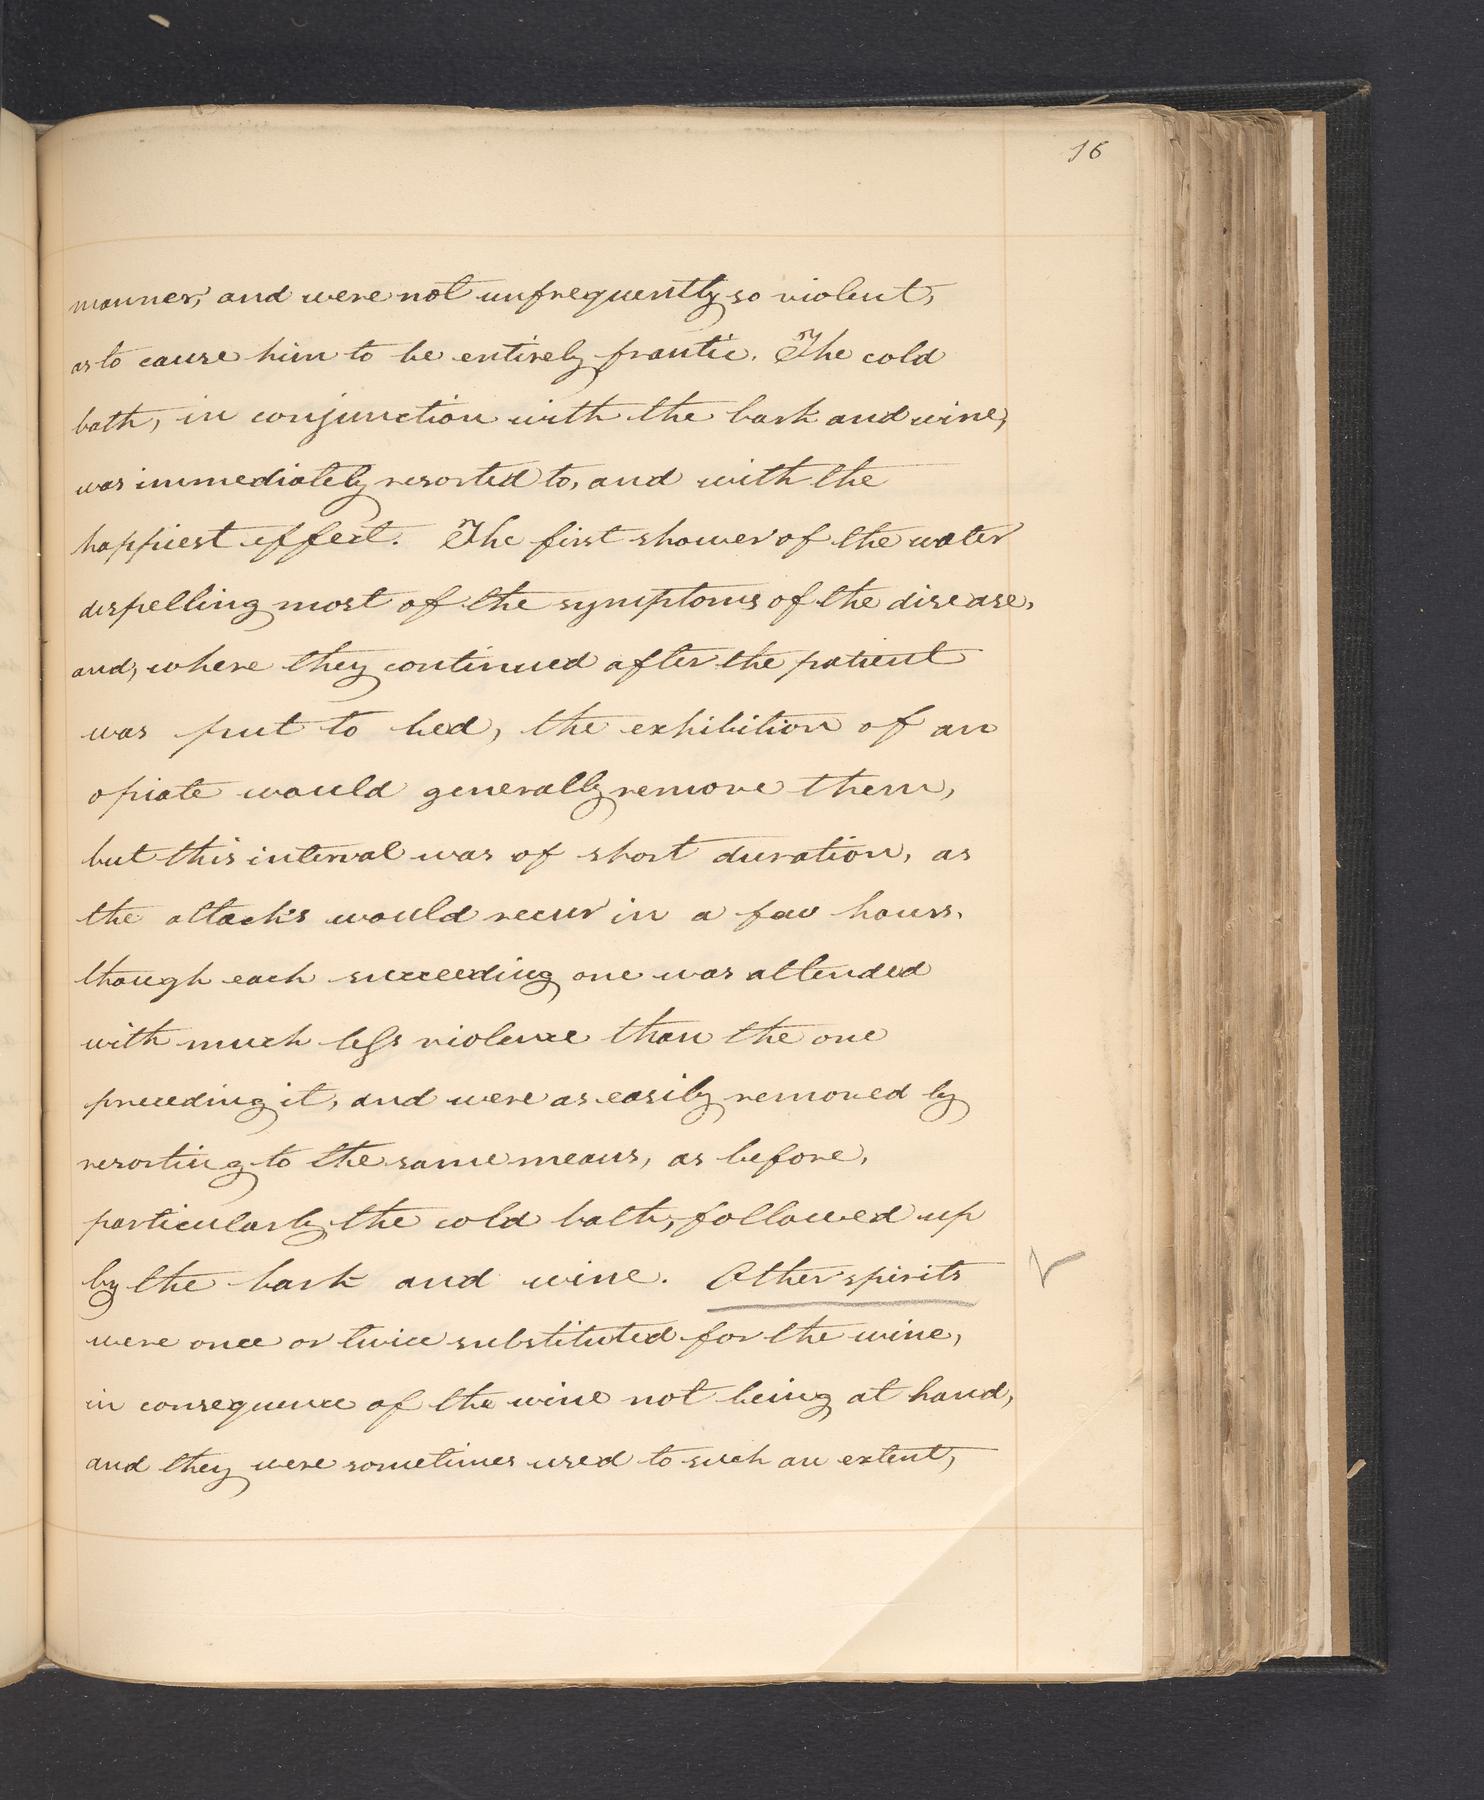 16
manner, and were not unfrequently so violent,
as to cause him to be entirely frantic. The cold
bath, in conjunction with the bark and wine,
was immediately resorted to, and with the
happiest effect. The first shower of the water
dispelling most of the symptoms of the disease,
and, where they continued after the patient
was put to bed, the exhibition of an
opiate would generally remove them,
but this interval was of short duration, as
the attacks would recur in a few hours,
though each succeeding one was attended
with much less violence than the one
preceding it, and were as easily removed by
resorting to the same means, as before,
particularly the cold bath, followed up
by the bark and wine. Other spirits
were once or twice substituted for the wine,
in consequence of the wine not being at hand,
and they were sometimes used to such an extent,